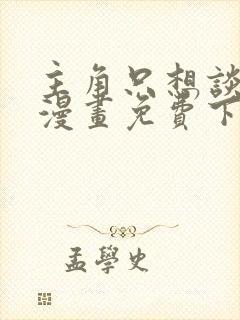 主角只想談
漫畫免費下
孟學史